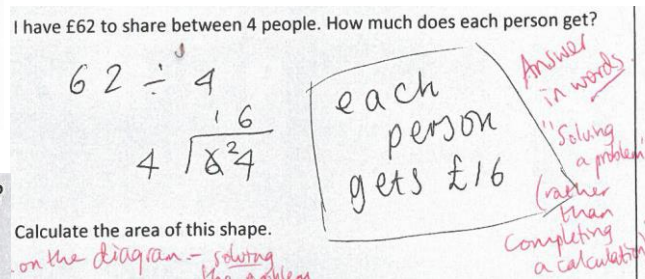 I have £62 to share between 4 people. How much does each person get?
62 ÷ 4
16
4 6²4
each
person
gets £16
Answer
in words
"Solving
a problem"
(rather
than
completing
a calculation)
Calculate the area of this shape.
on the diagram - solving
the problem